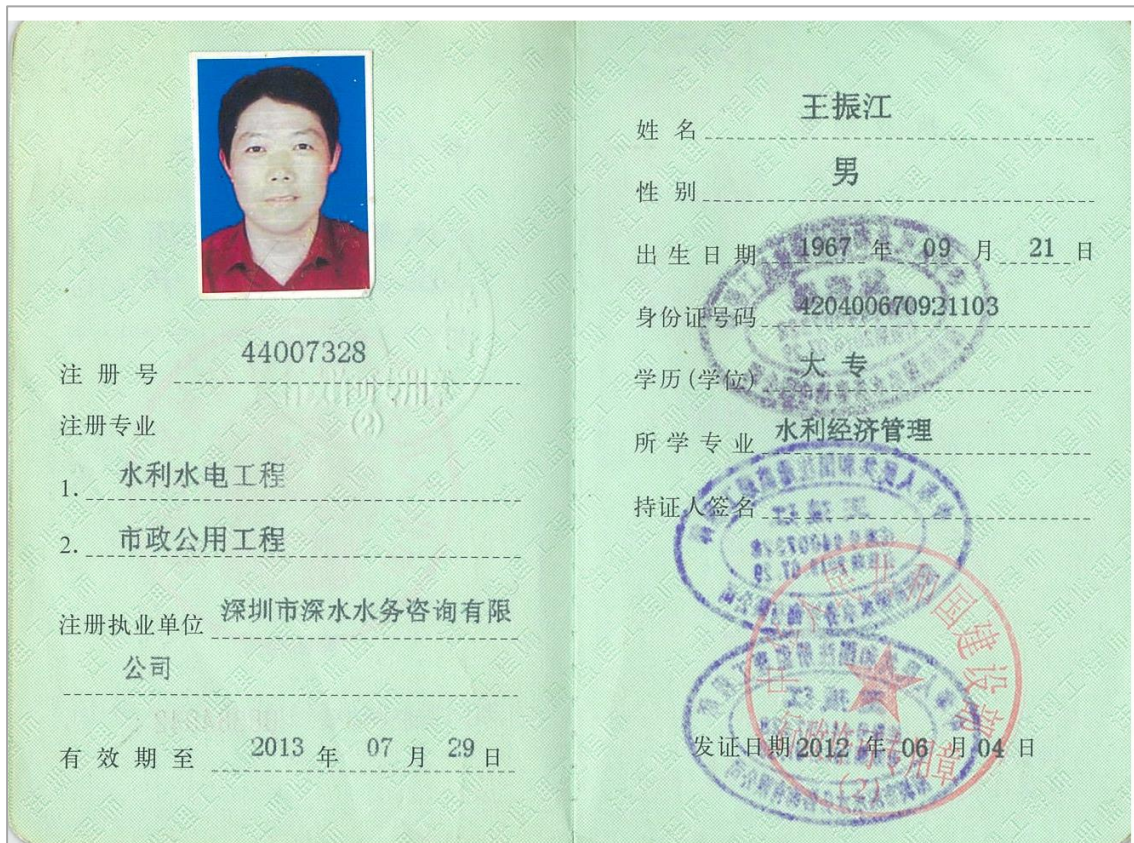 注册号 44007328
注册专业
1. 水利水电工程
2. 市政公用工程
注册执业单位 深圳市深水水务咨询有限
公司
有效期至 2013 年 07 月 29 日
姓名 王振江
性别 男
出生日期 1967 年 09 月 21 日
身份证号码 420400670921103
学历(学位) 大专
所学专业 水利经济管理
持证人签名
发证日期 2012 年 06 月 04 日